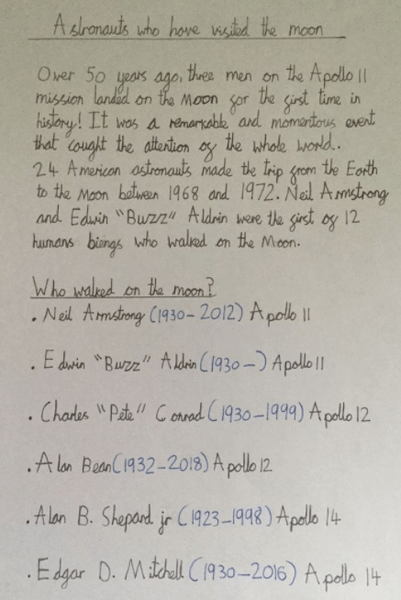 Astronauts who have visited the moon
Over 50 years ago, three men on the Apollo 11
mission landed on the Moon for the first time in
history! It was a remarkable and momentous event
that cought the attention of the whole world.
24 American astronauts made the trip from the Earth
to the Moon between 1968 and 1972. Neil Armstrong
and Edwin "Buzz" Aldrin were the first of 12
humans biengs who walked on the Moon.
Who walked on the moon?
• Neil Armstrong (1930-2012) Apollo 11
• Edwin "Buzz" Aldrin (1930-) Apollo 11
• Charles "Pete" Conrad (1930-1999) Apollo 12
• Alan Bean (1932-2018) Apollo 12
• Alan B. Shepard jr (1923-1998) Apollo 14
• Edgar D. Mitchell (1930-2016) Apollo 14